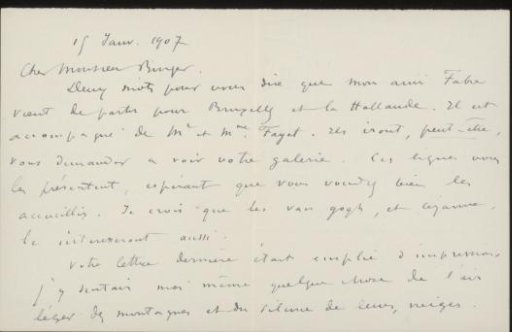 15 Janv. 1907
Cher Monsieur Bonger.
Deux mots pour vous dire que mon ami Fabre
vient de partir pour Bruxelles et la Hollande. Il est
accompagné de Mr et Mme Fayet. Ils iront, peut-être,
vous demander a voir votre galerie. Ces lignes vous
les présentent, espérant que vous voudrez bien les
accueillir. Je crois que les van gogh, et cezanne,
le interesseront aussi.
Votre lettre dernière était emplie d'impressions
j'y sentais moi même quelque chose de l'air
léger des montagnes et du silence de leurs neiges.